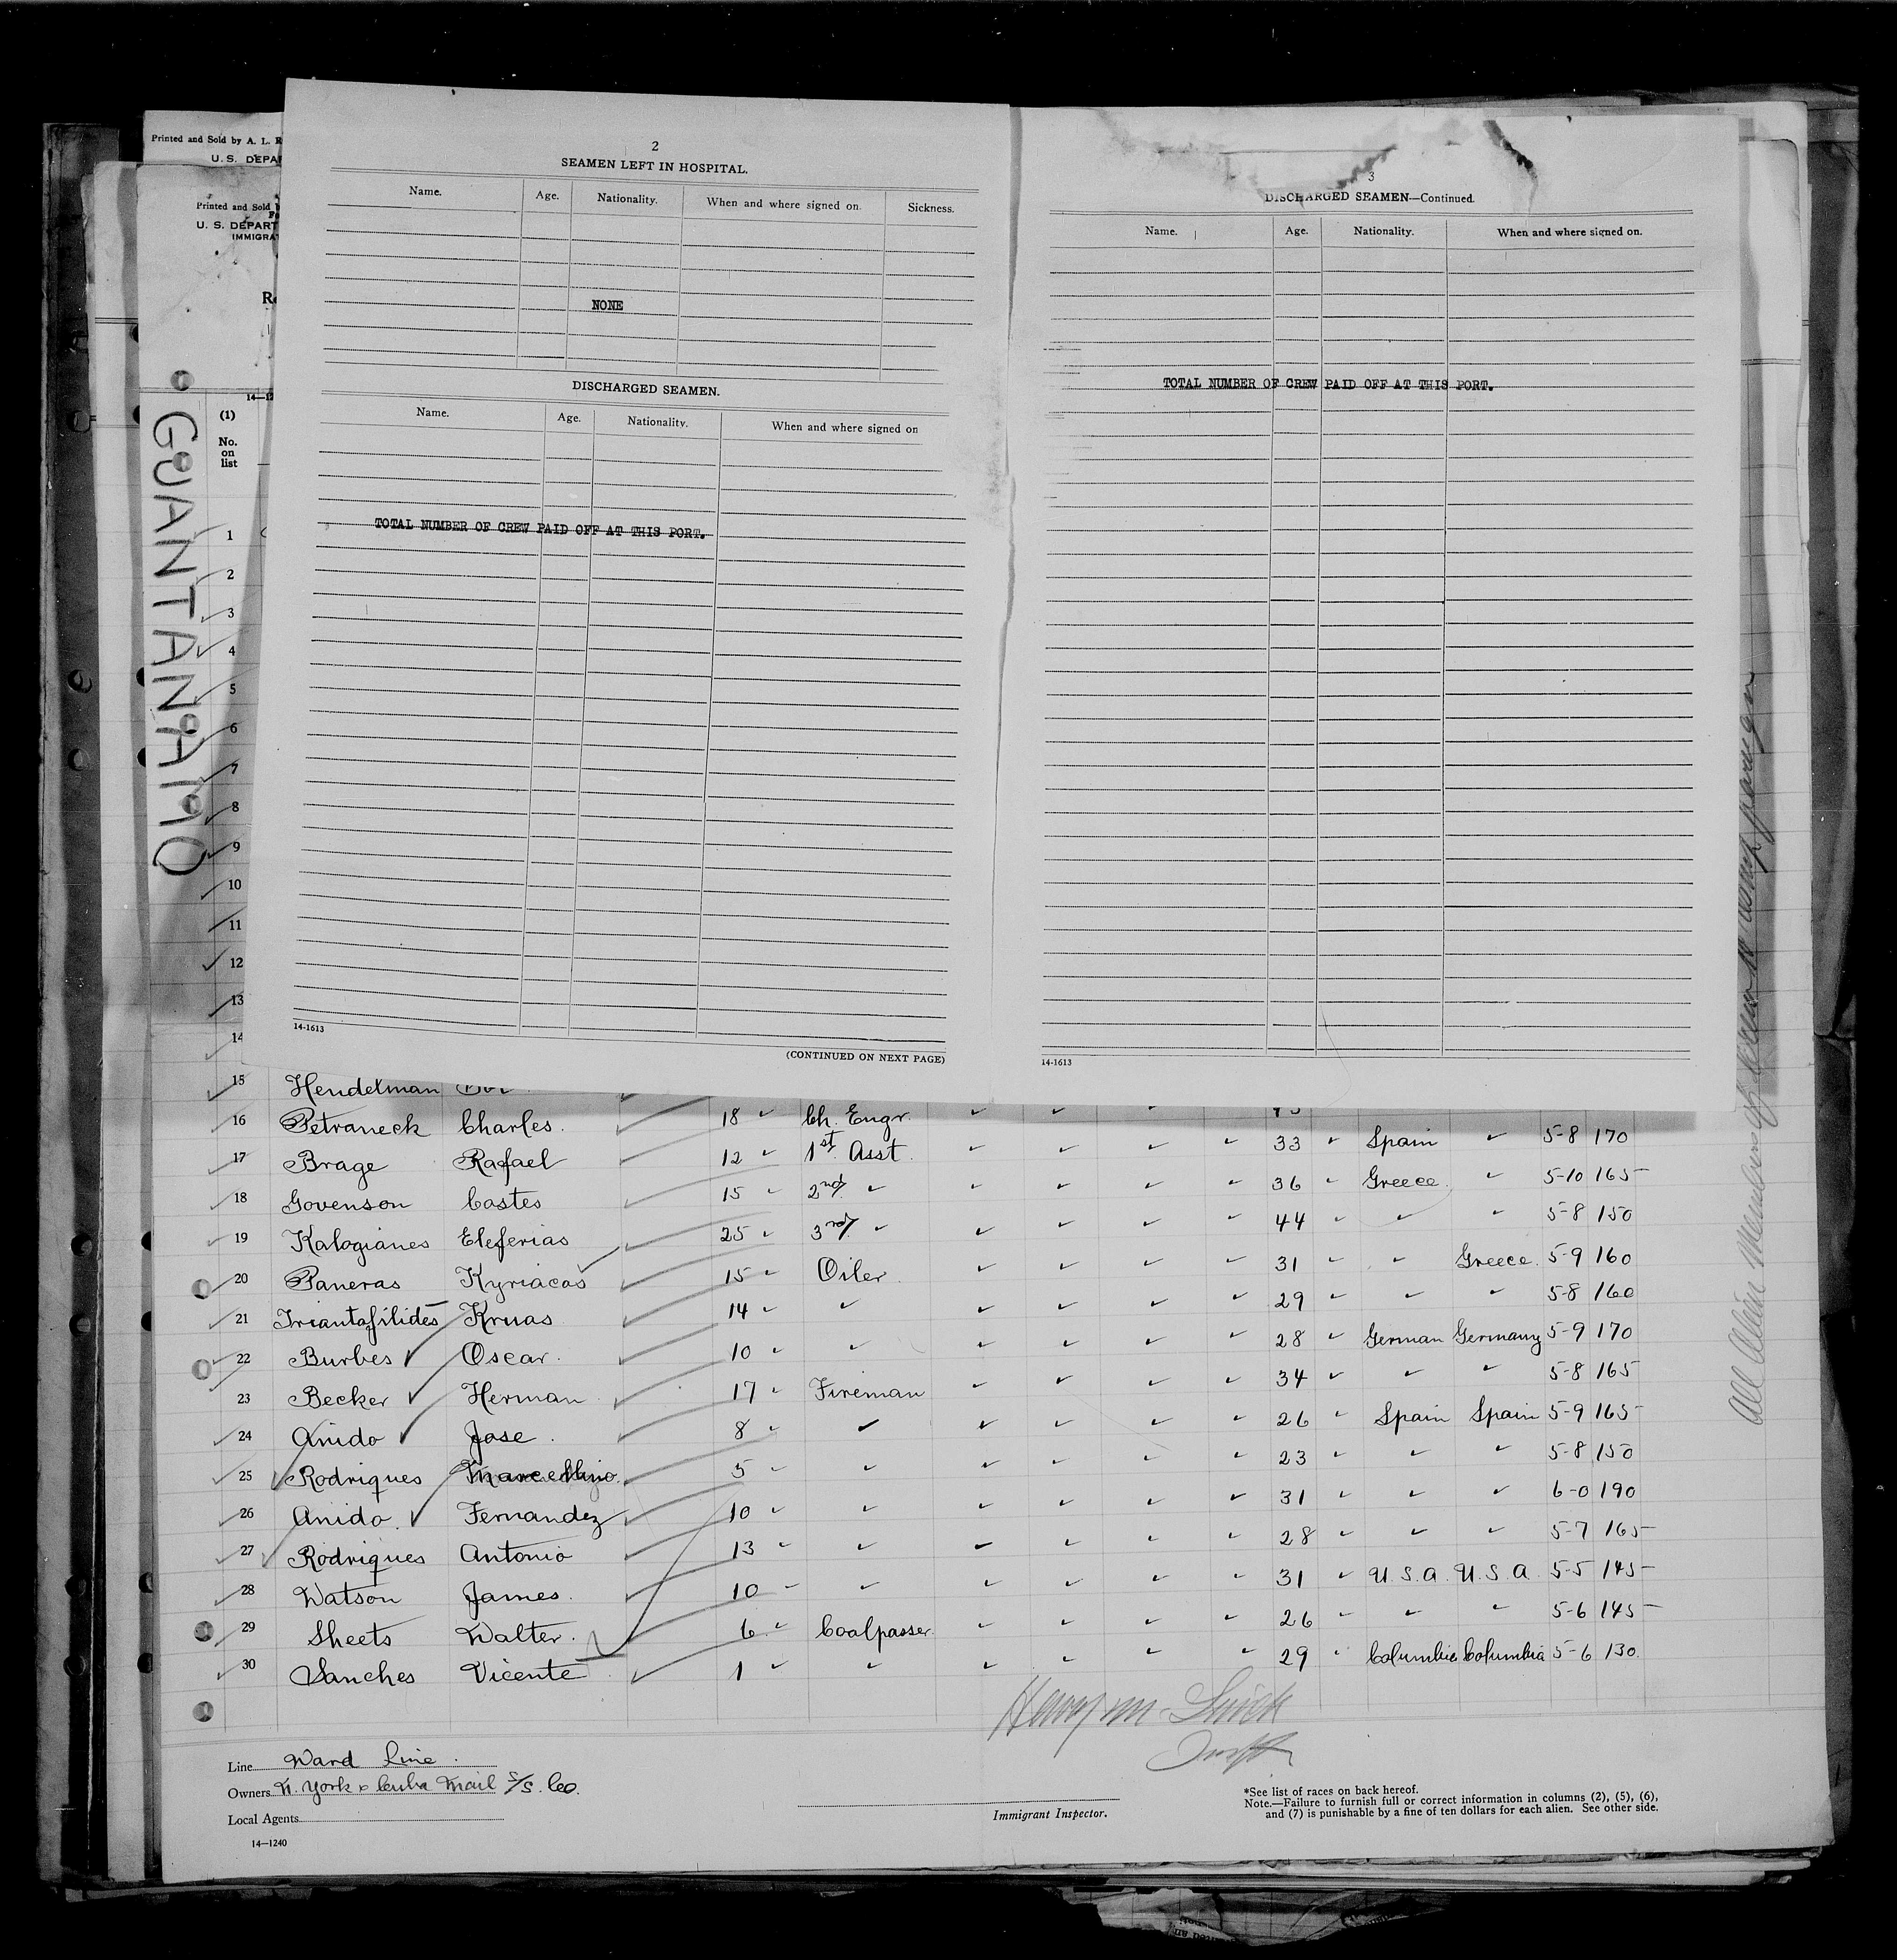 Printed and Sold by A. L. R
U. S. DEPA
Printed and Sold b
U. S. DEPART
IMMIGRA
GUANTANAMO
(1)
No.
on
list
1
2
3
4
5
6
7
8
9
10
11
12
13
14
2
SEAMEN LEFT IN HOSPITAL.
Name. Age. Nationality. When and where signed on. Sickness.
NONE
DISCHARGED SEAMEN.
Name. Age. Nationality. When and where signed on
TOTAL NUMBER OF CREW PAID OFF AT THIS PORT.
14-1613
(CONTINUED ON NEXT PAGE)
3
DISCHARGED SEAMEN—Continued.
Name. Age. Nationality. When and where signed on.
TOTAL NUMBER OF CREW PAID OFF AT THIS PORT.
14-1613
15 Hendelman
16 Petraneck Charles. 18 ✓ Ch. Engr. ✓ ✓ ✓
17 Brage Rafael 12 ✓ 1st Asst. ✓ ✓ ✓ ✓ 33 ✓ Spain ✓ 5-8 170
18 Govenson Costes 15 ✓ 2nd ✓ ✓ ✓ ✓ ✓ 36 ✓ Greece. ✓ 5-10 165
19 Kalogianes Eleferias 25 ✓ 3rd ✓ ✓ ✓ ✓ ✓ 44 ✓ ✓ ✓ 5-8 150
20 Paneras Kyriacas 15 ✓ Oiler ✓ ✓ ✓ ✓ 31 ✓ ✓ Greece. 5-9 160
21 Triantafilides Kruas 14 ✓ ✓ ✓ ✓ ✓ ✓ 29 ✓ ✓ ✓ 5-8 160
22 Burbes Oscar. 10 ✓ ✓ ✓ ✓ ✓ ✓ 28 ✓ German Germany 5-9 170
23 Becker Herman 17 ✓ Fireman ✓ ✓ ✓ ✓ 34 ✓ ✓ ✓ 5-8 165
24 Anido Jose. 8 ✓ ✓ ✓ ✓ ✓ ✓ 26 ✓ Spain Spain 5-9 165
25 Rodriques Marcellino. 5 ✓ ✓ ✓ ✓ ✓ ✓ 23 ✓ ✓ ✓ 5-8 150
26 Anido. Fernandez 10 ✓ ✓ ✓ ✓ ✓ ✓ 31 ✓ ✓ ✓ 6-0 190
27 Rodriques Antonio 13 ✓ ✓ ✓ ✓ ✓ ✓ 28 ✓ ✓ ✓ 5-7 165
28 Watson James. 10 ✓ ✓ ✓ ✓ ✓ ✓ 31 ✓ U.S.A. U.S.A. 5-5 145
29 Sheets Walter. 6 ✓ Coalpasser ✓ ✓ ✓ ✓ 26 ✓ ✓ ✓ 5-6 145
30 Sanches Vicente 1 ✓ ✓ ✓ ✓ ✓ ✓ 29 ✓ Columbia Columbia 5-6 130.
All Alien Members of Crew
Line Ward Line.
Owners N. York & Cuba Mail S/S. Co.
Local Agents
14—1240
Immigrant Inspector.
*See list of races on back hereof.
Note.—Failure to furnish full or correct information in columns (2), (5), (6),
and (7) is punishable by a fine of ten dollars for each alien. See other side.